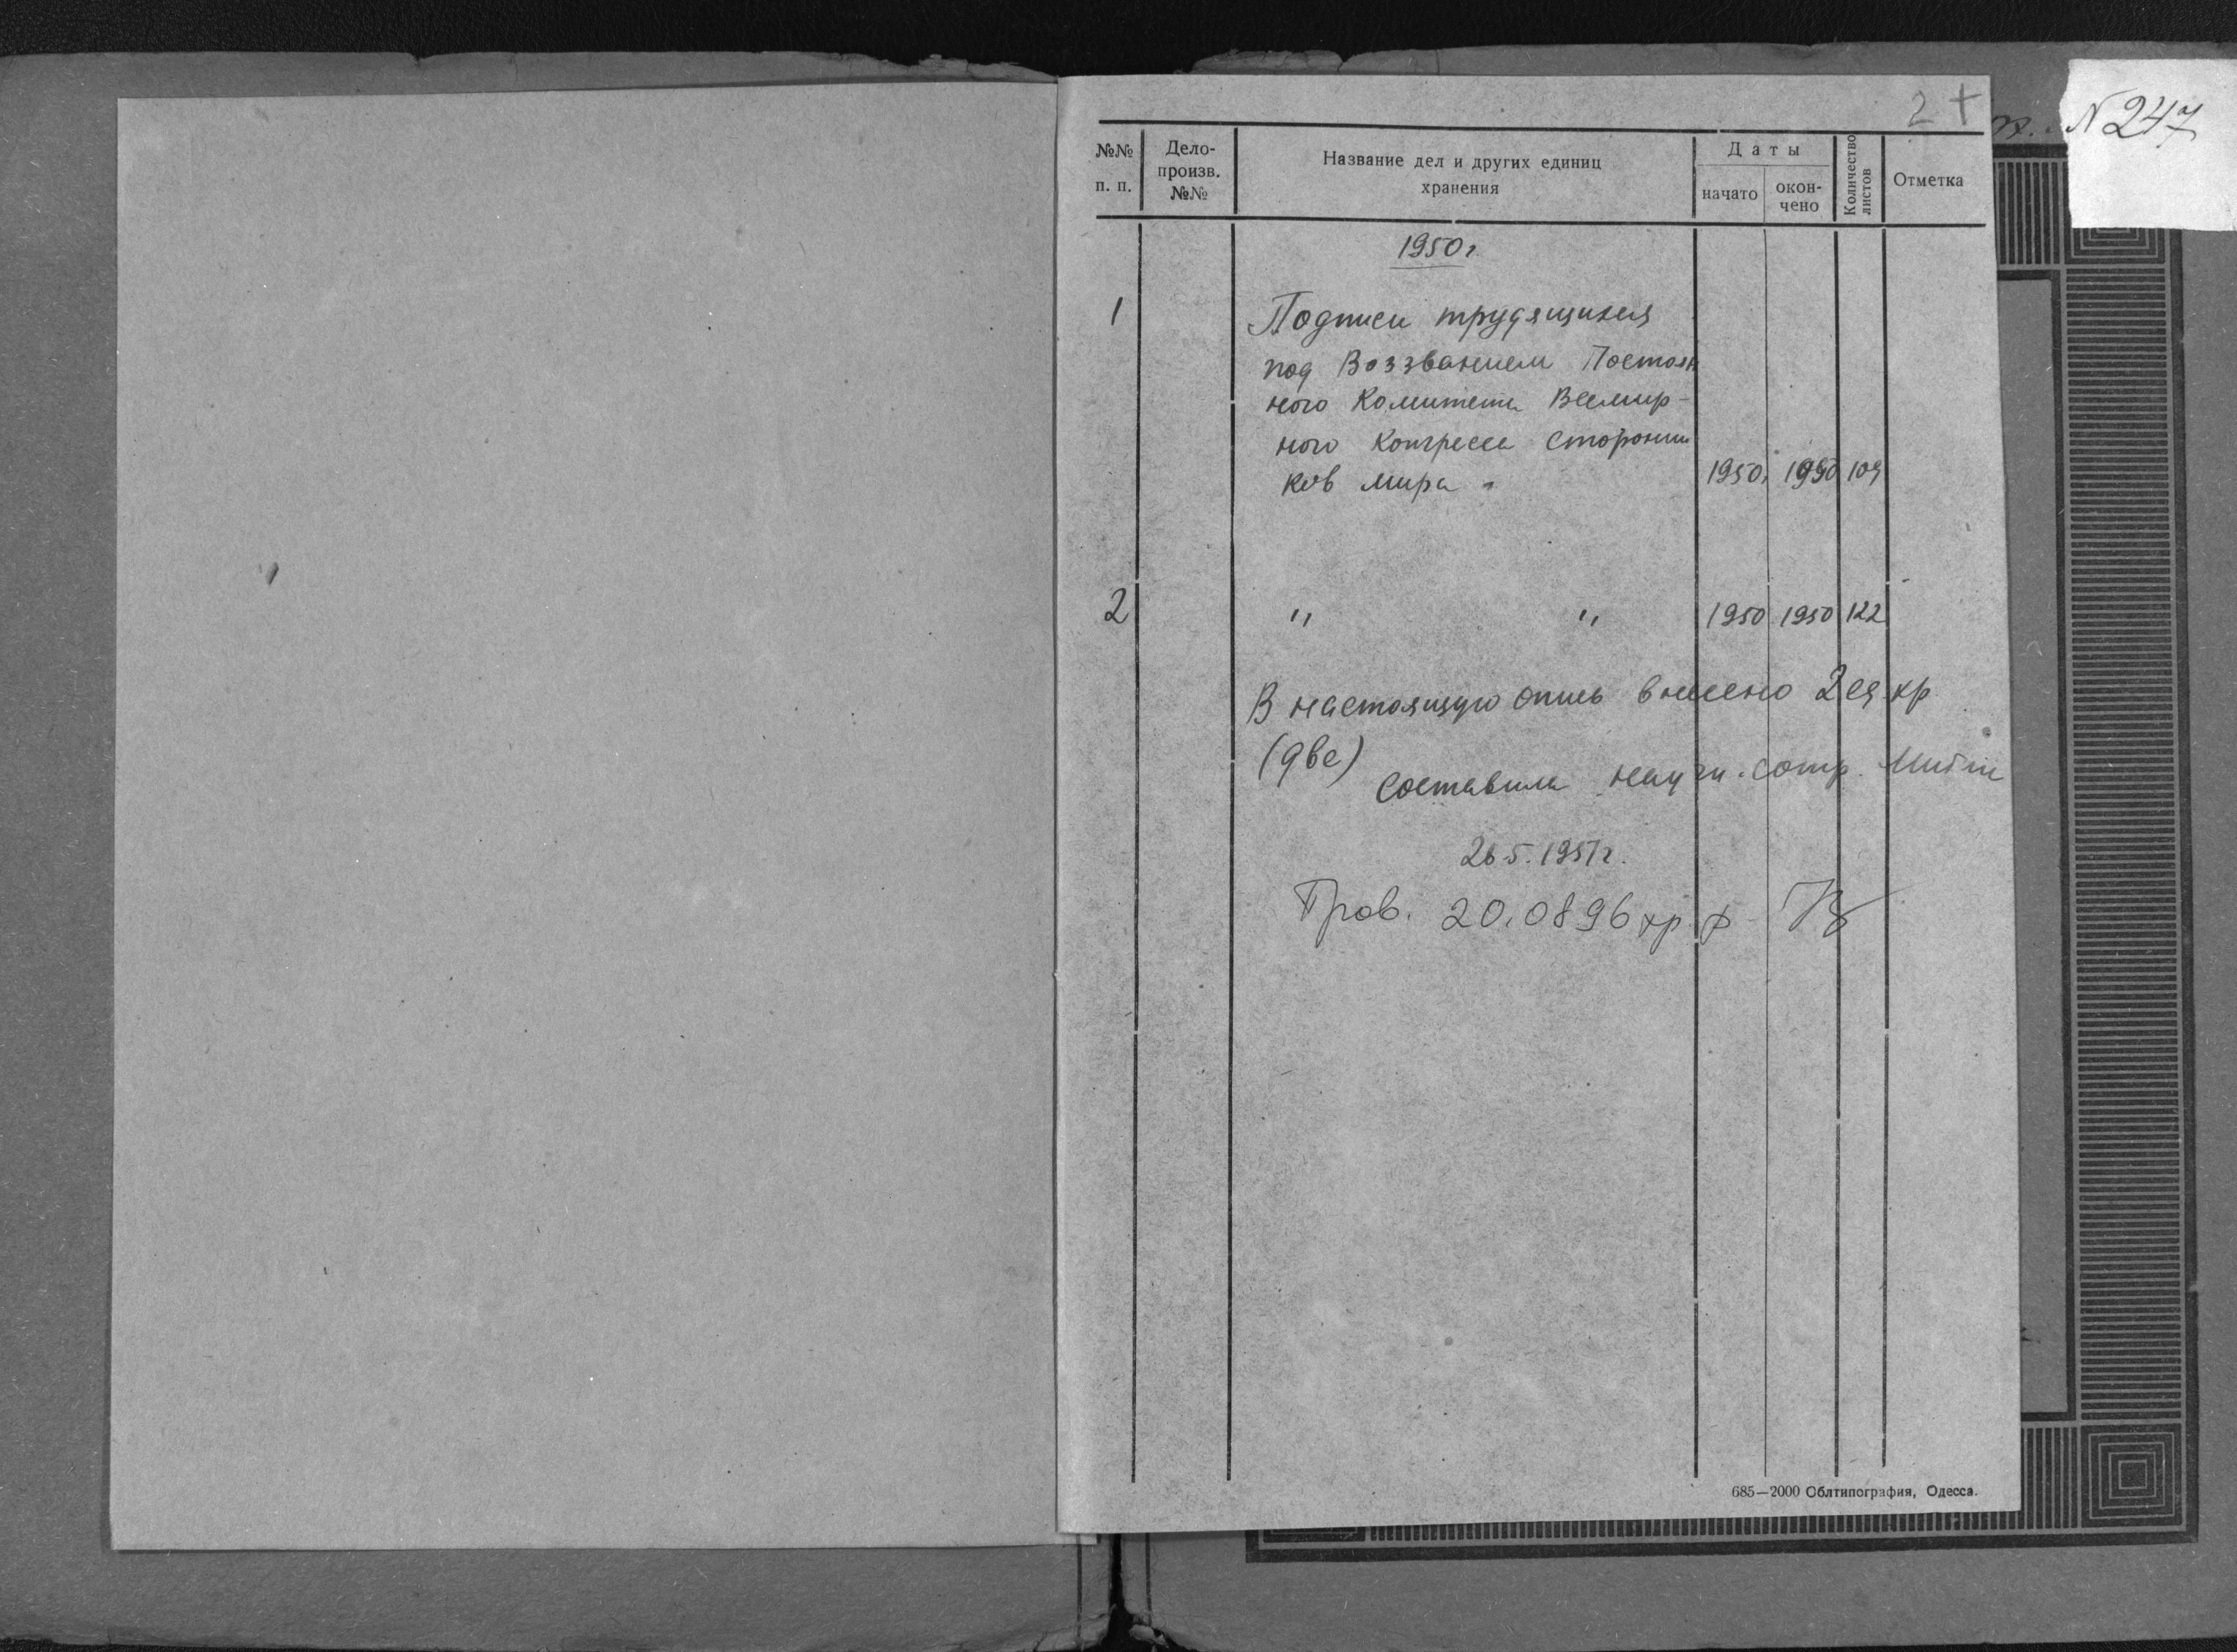 2 +
№ 247
№№ п. п.
Дело-
произв.
№№
Название дел и других единиц
хранения
Даты
начато
окон-
чено
Количество
листов
Отметка
1950 г
1
Подписи трудящихся
под Воззванием Постоян
ного Комитета Всемир-
ного Конгресса Сторонни
ков мира "
1950, 1950 109
2 " " 1950 1950 122
В настоящую опись внесено 2 ед. хр
(две)
Составила научн. сотр.
26.5.1951 г.
Пров. 20.08.96 хр
685—2000 Облтипография, Одесса.